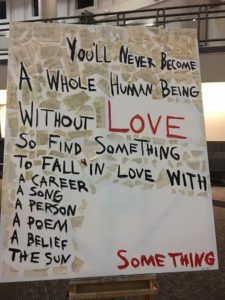 YOU'LL NEVER BECOME
A WHOLE HUMAN BEING
WITHOUT LOVE
SO FIND SOMETHING
TO FALL IN LOVE WITH
A CAREER
A SONG
A PERSON
A POEM
A BELIEF
THE SUN
SOMETHING